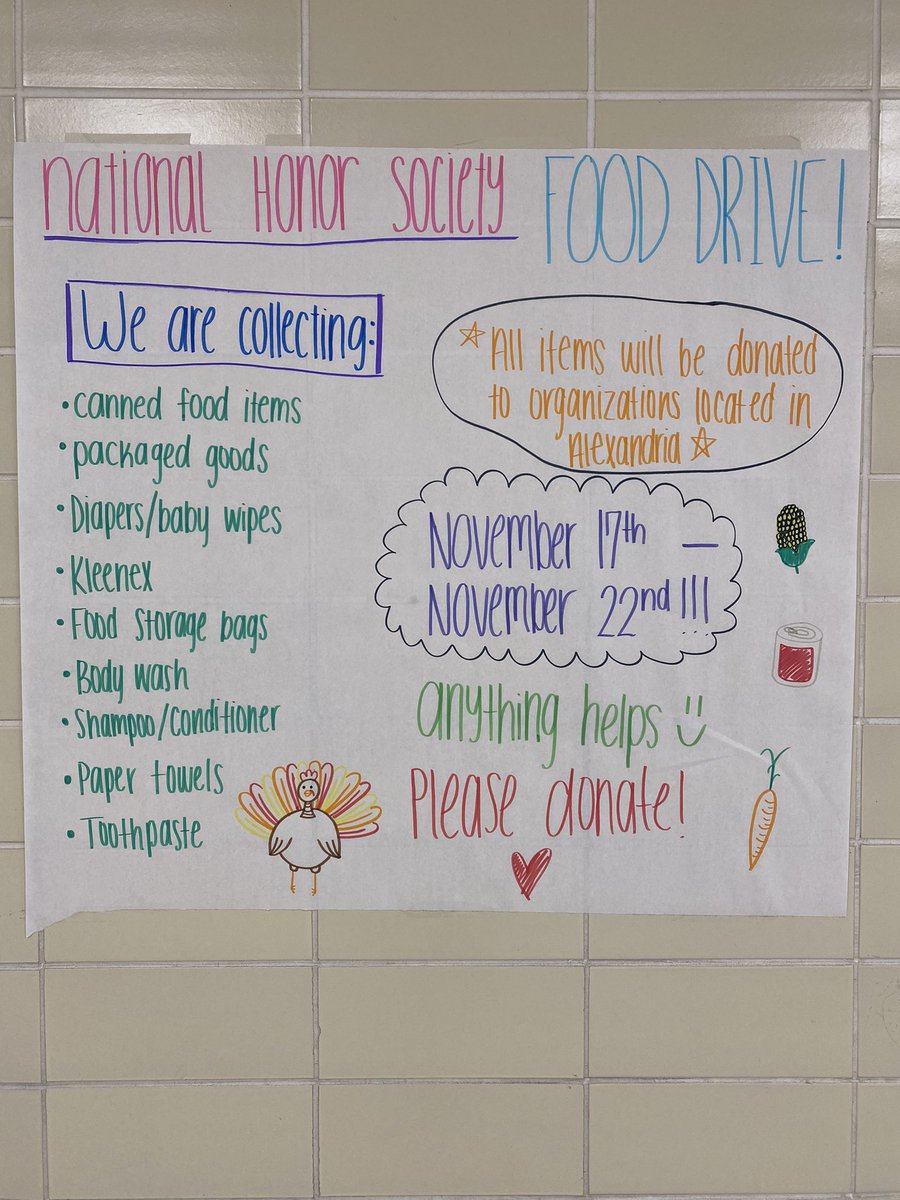 National Honor Society FOOD DRIVE!
We are collecting:
• canned food items
• packaged goods
• Diapers/baby wipes
• Kleenex
• Food storage bags
• Body wash
• Shampoo/Conditioner
• Paper towels
• Toothpaste
☆ All items will be donated
to organizations located in
Alexandria ☆
November 17th —
November 22nd!!!
anything helps :)
Please donate!